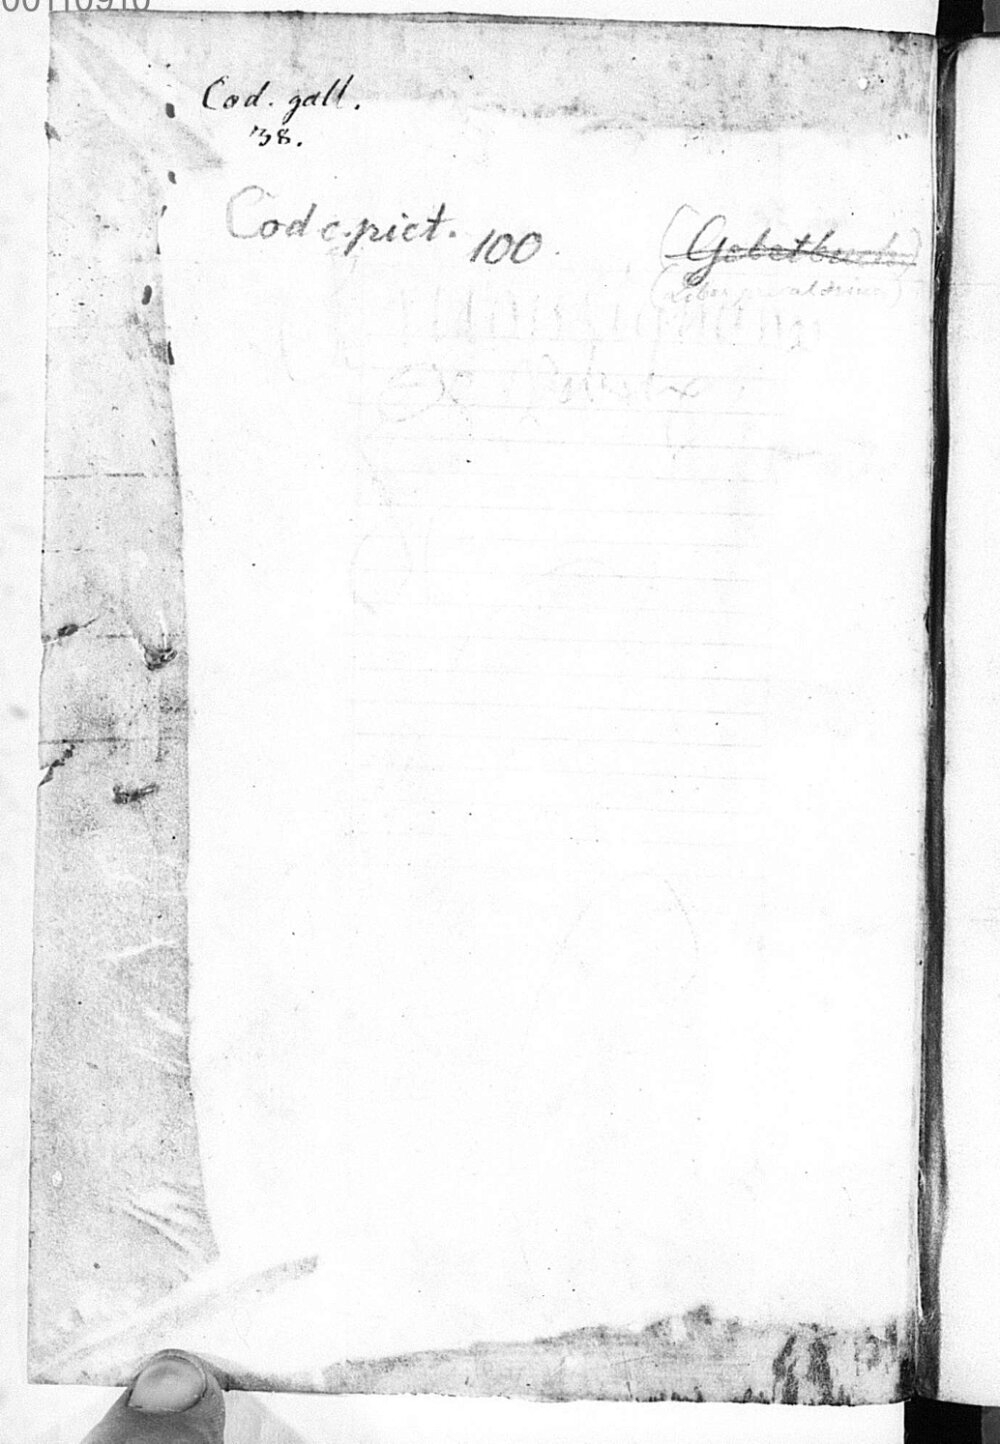 00110910
Cod. gall.
38.
Cod c. pict. 100.
(Gebetbuch)
(Liber